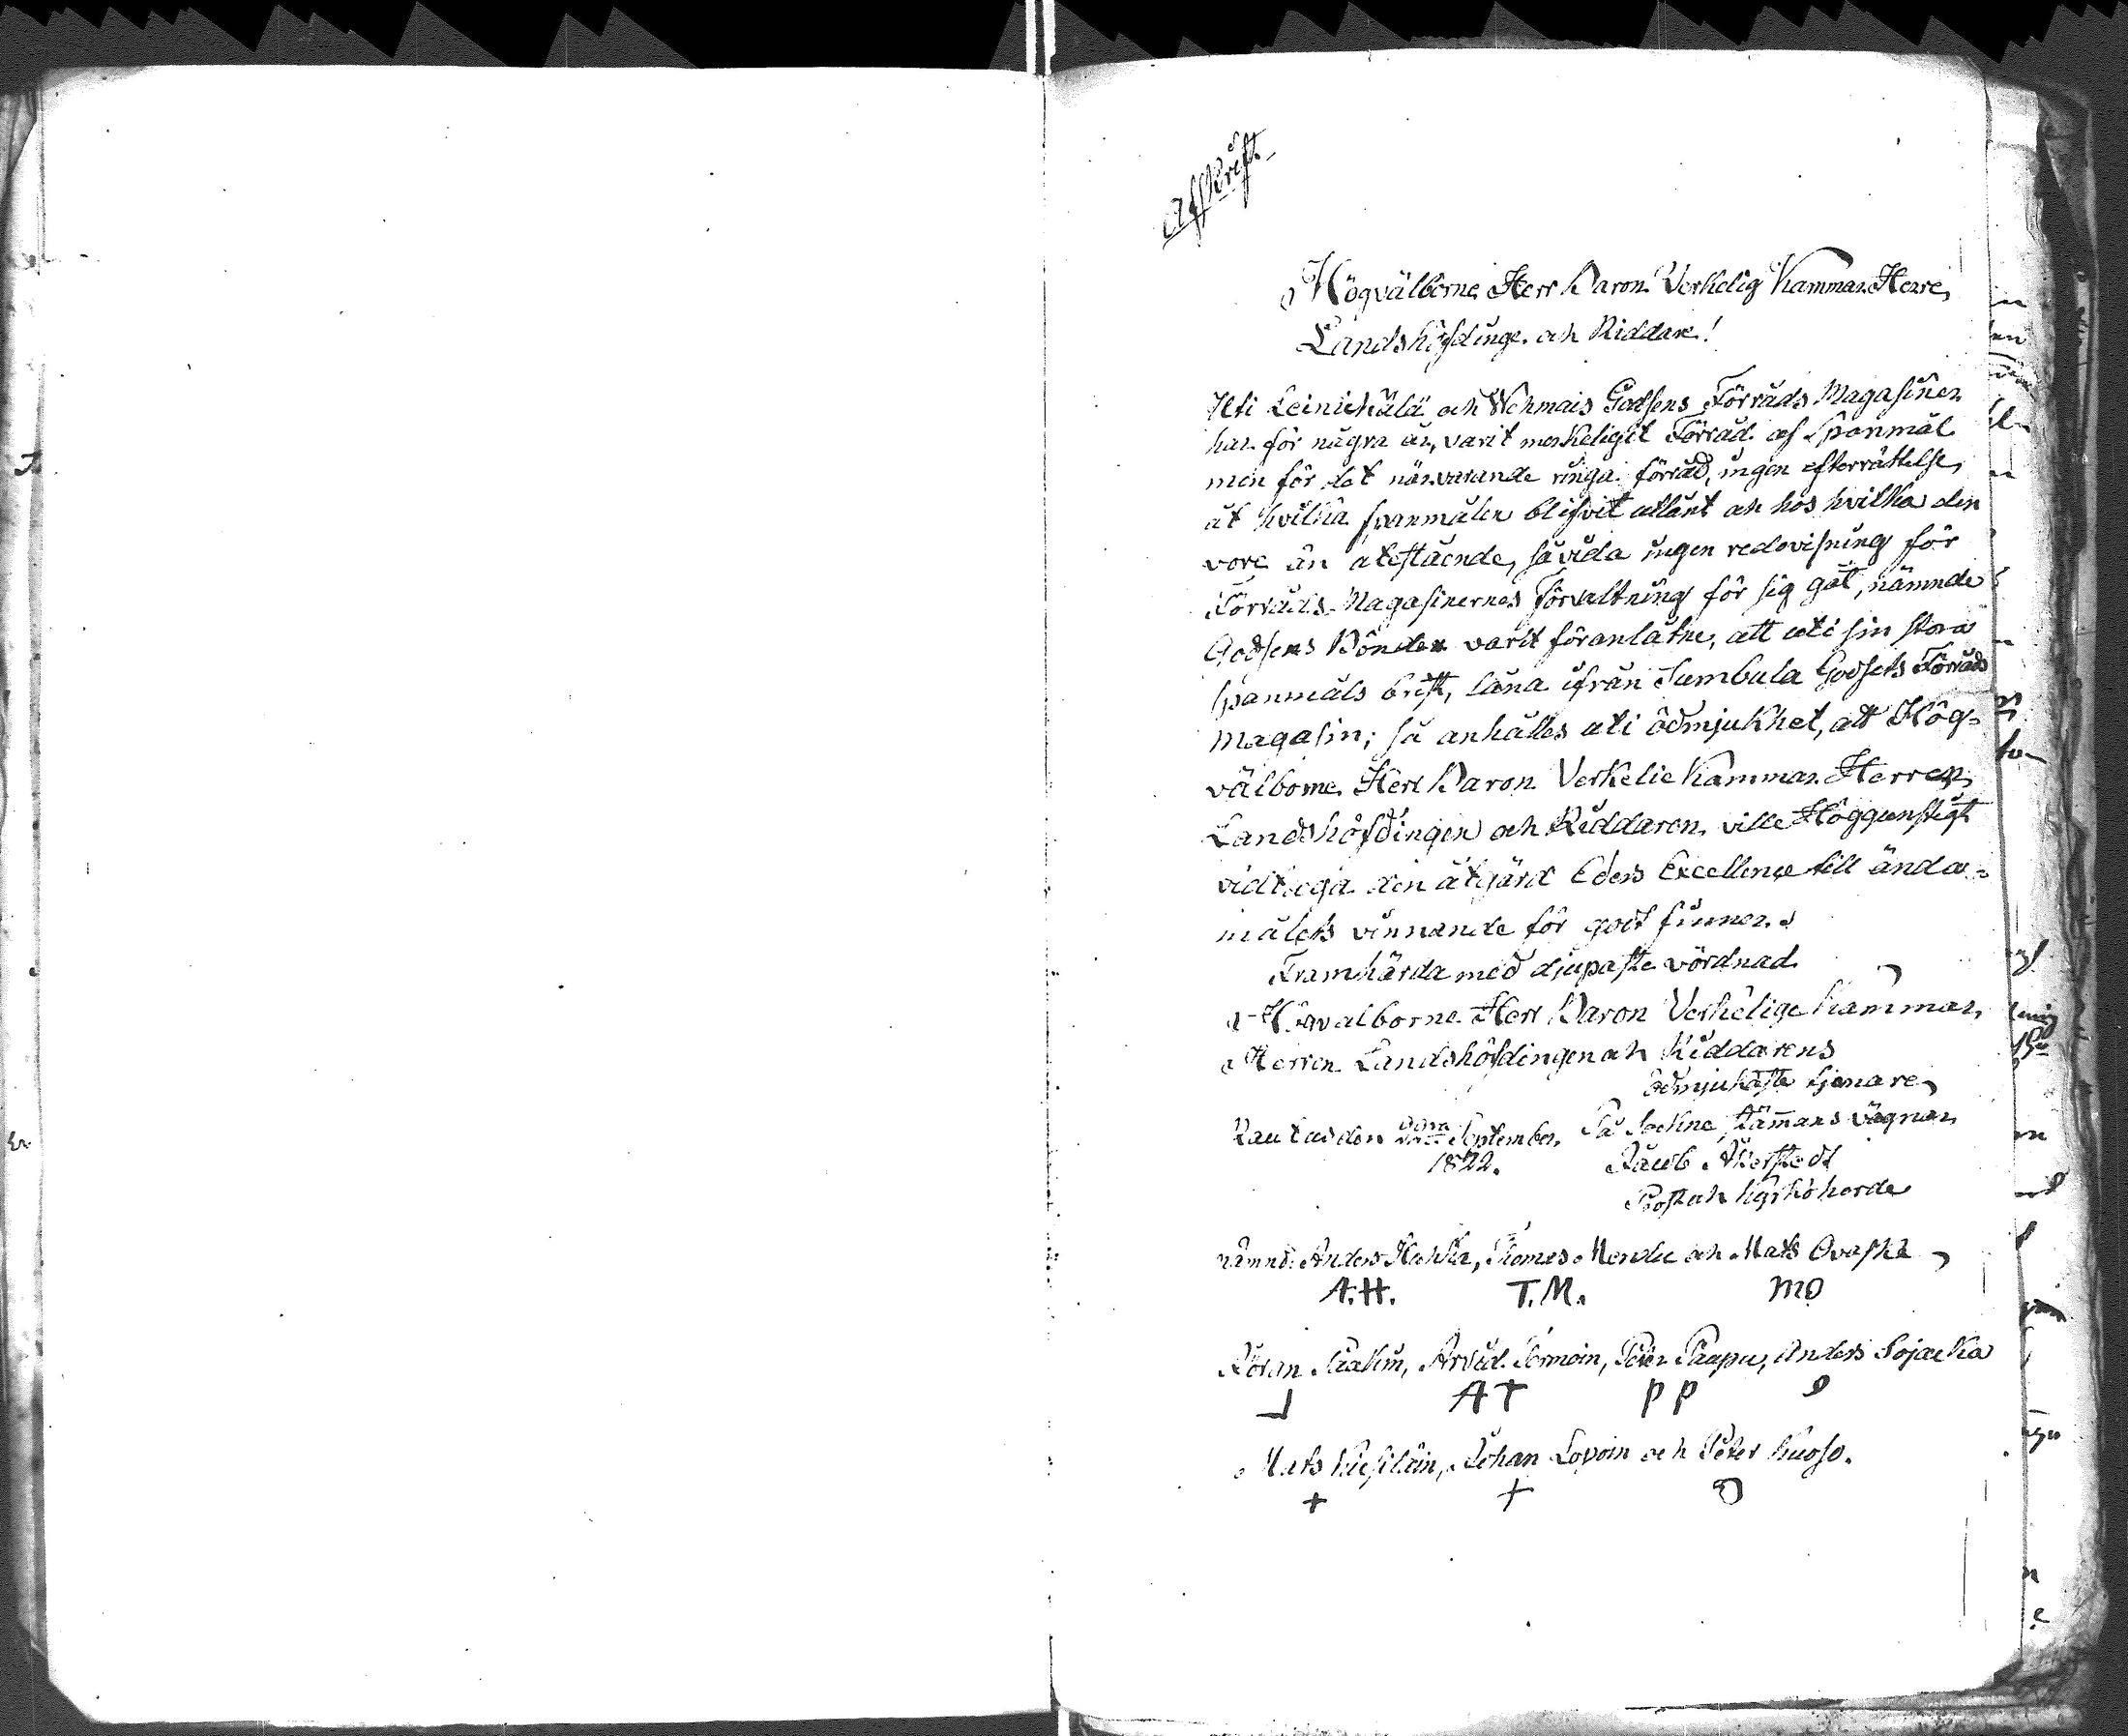 Afskrift
Högvälborne Herr Baron Verkelig Kammar Herre,
Landshöfdinge och Riddare!
Uti Leinikälä och Wehmais Godsens Förråds Magasiner
har för några år, varit merkeligit Förråd af Spanmål
men för det närvarande ringa förråd, ingen efterrättelse,
åt hvilka spanmålen blifvit utlånt och hos hvilka den
vore än utestående, såvida ingen redovisning för
Förråds Magasinernes Förvaltning för sig gåt, nämnde
Godsens Bönder varit föranlåtne, att uti sin stora
spanmåls brist, låna ifrån Sumbula Godsets Förråds
Magasin; så anhålles uti ödmjukhet, att Hög-
välborne Herr Baron Verkelie Kammar Herren,
Landshöfdingen och Riddaren, ville Höggunstigt
vidtaga den åtgärd Eders Excellence till ända-
målets vinnande för godt finner.
Framhärda med djupaste vördnad
Högvälborne Herr Baron Verkelige Kammar
Herren Landshöfdingen och Riddarens
ödmjukaste tjenare,
Rautus den September På Sockne Stämans vägnar
1822. Jacob Åkerstedt
Prost och Kyrkoherde
nämnd: Anders Hakka, Thomas och Mats Ovaska
A.H. T.M. MO
Arvid Termoin, Peter Paapu, Anders Sojacka
AT PP
Mats Kiesiläin, Johan Lopoin och Peter Kuoso.
+ +